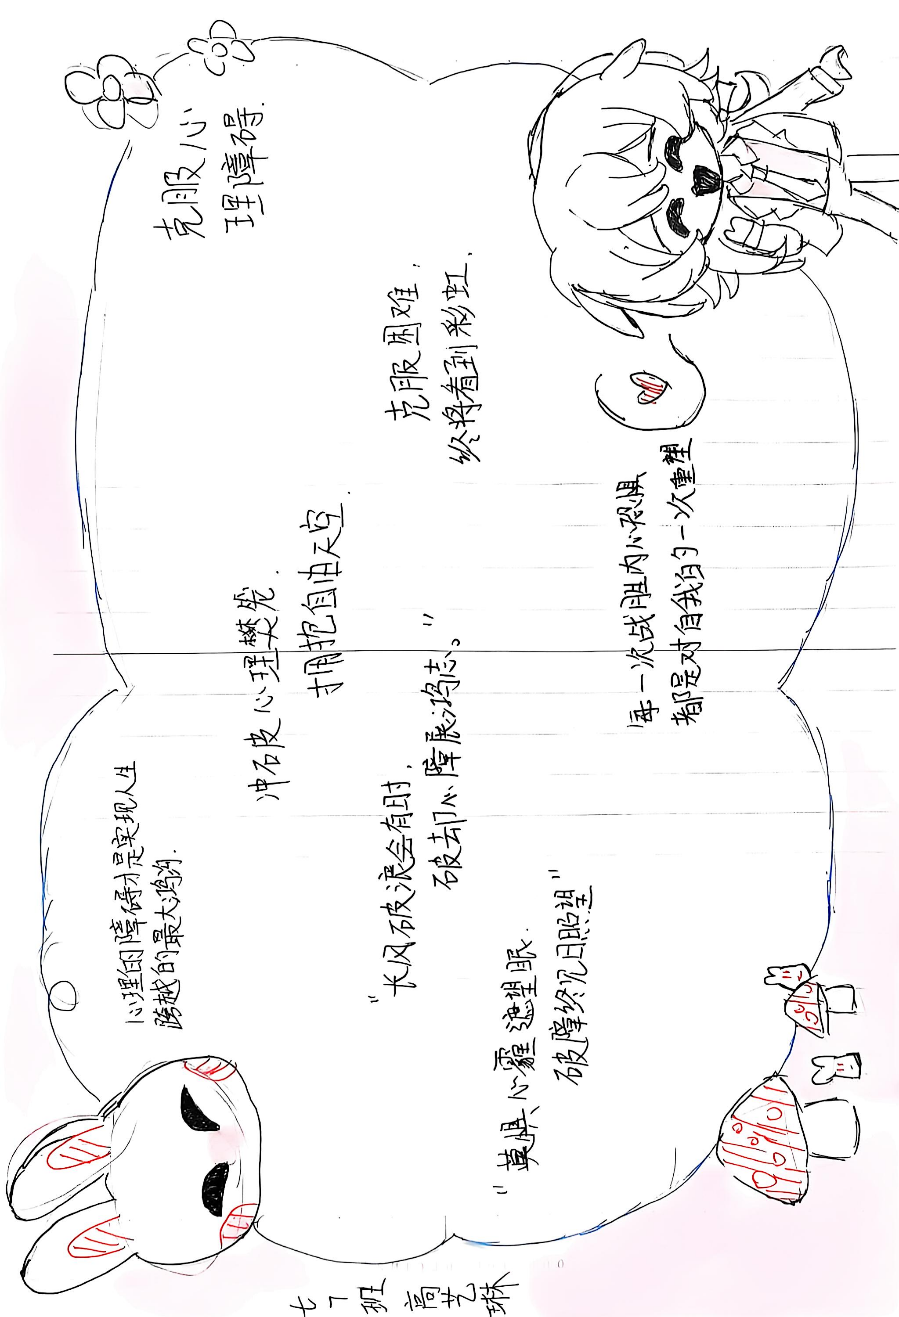 心理的障碍才是实现人生
跨越的最大鸿沟.
克服心
理障碍.
冲破心理樊
拥抱自由天空.
"长风破浪会有时,
破却心障展鸿志。"
克服困难,
终将看到彩虹.
"莫惧心霾遮望眼.
破障终见日照望"
每一次战胜内心恐惧
都是对自我的一次重塑
七7班 高艺琳